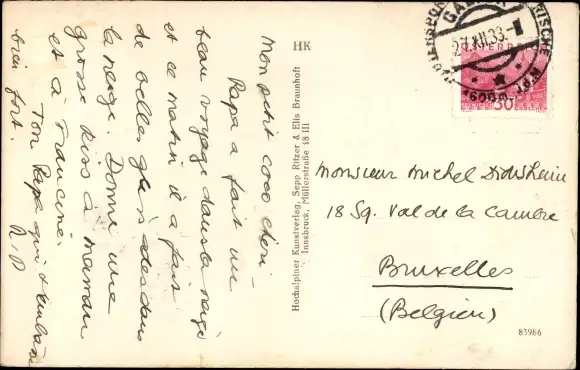 Mon petit coco chéri -
Papa a fait un
beau voyage dans la neige
et ce matin il a fait
de belles
la neige. Donne une
grosse kiss à maman
et à Francine.
Ton Papa qui t'embrasse
bien fort.
HK
Hochalpiner Kunstverlag, Sepp Ritzer & Elis Braunhoft
Innsbruck, Müllerstraße 18 III
27.XII.33
ÖSTERREICH
30
1600m
Monsieur Michel
18 Sq. Val de la Cambre
Bruxelles
(Belgien)
83986